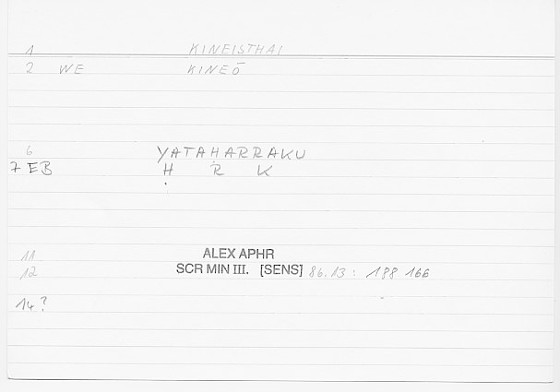 1 KINEISTHAI
2 WE KINEŌ
6 YATAḤARRAKU
7 EB Ḥ R K
11 ALEX APHR
12 SCR MIN III. [SENS] 86.13: 188 166
14?